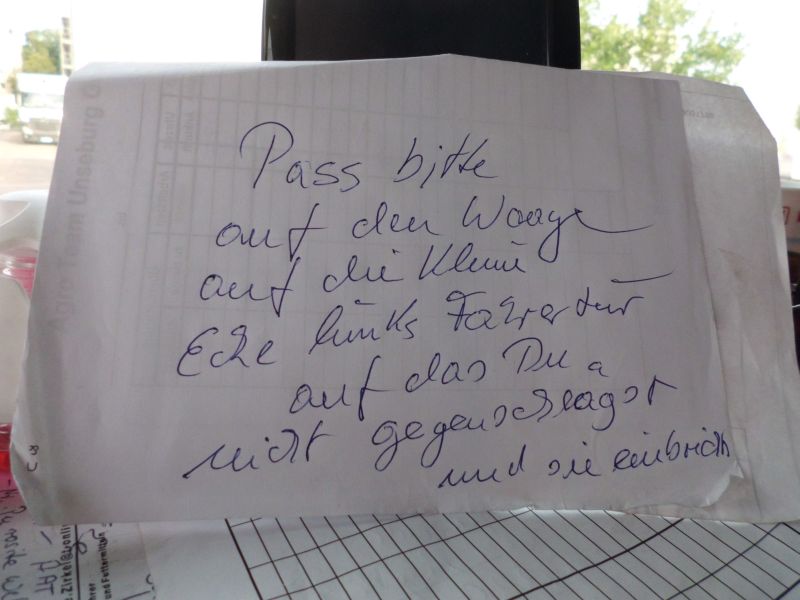 Pass bitte
auf den Waage
auf die Kleine
Ecke links Fahrertür
auf das Du
nicht gegenschlagst
und sie einbricht
Agro Team Unseburg G